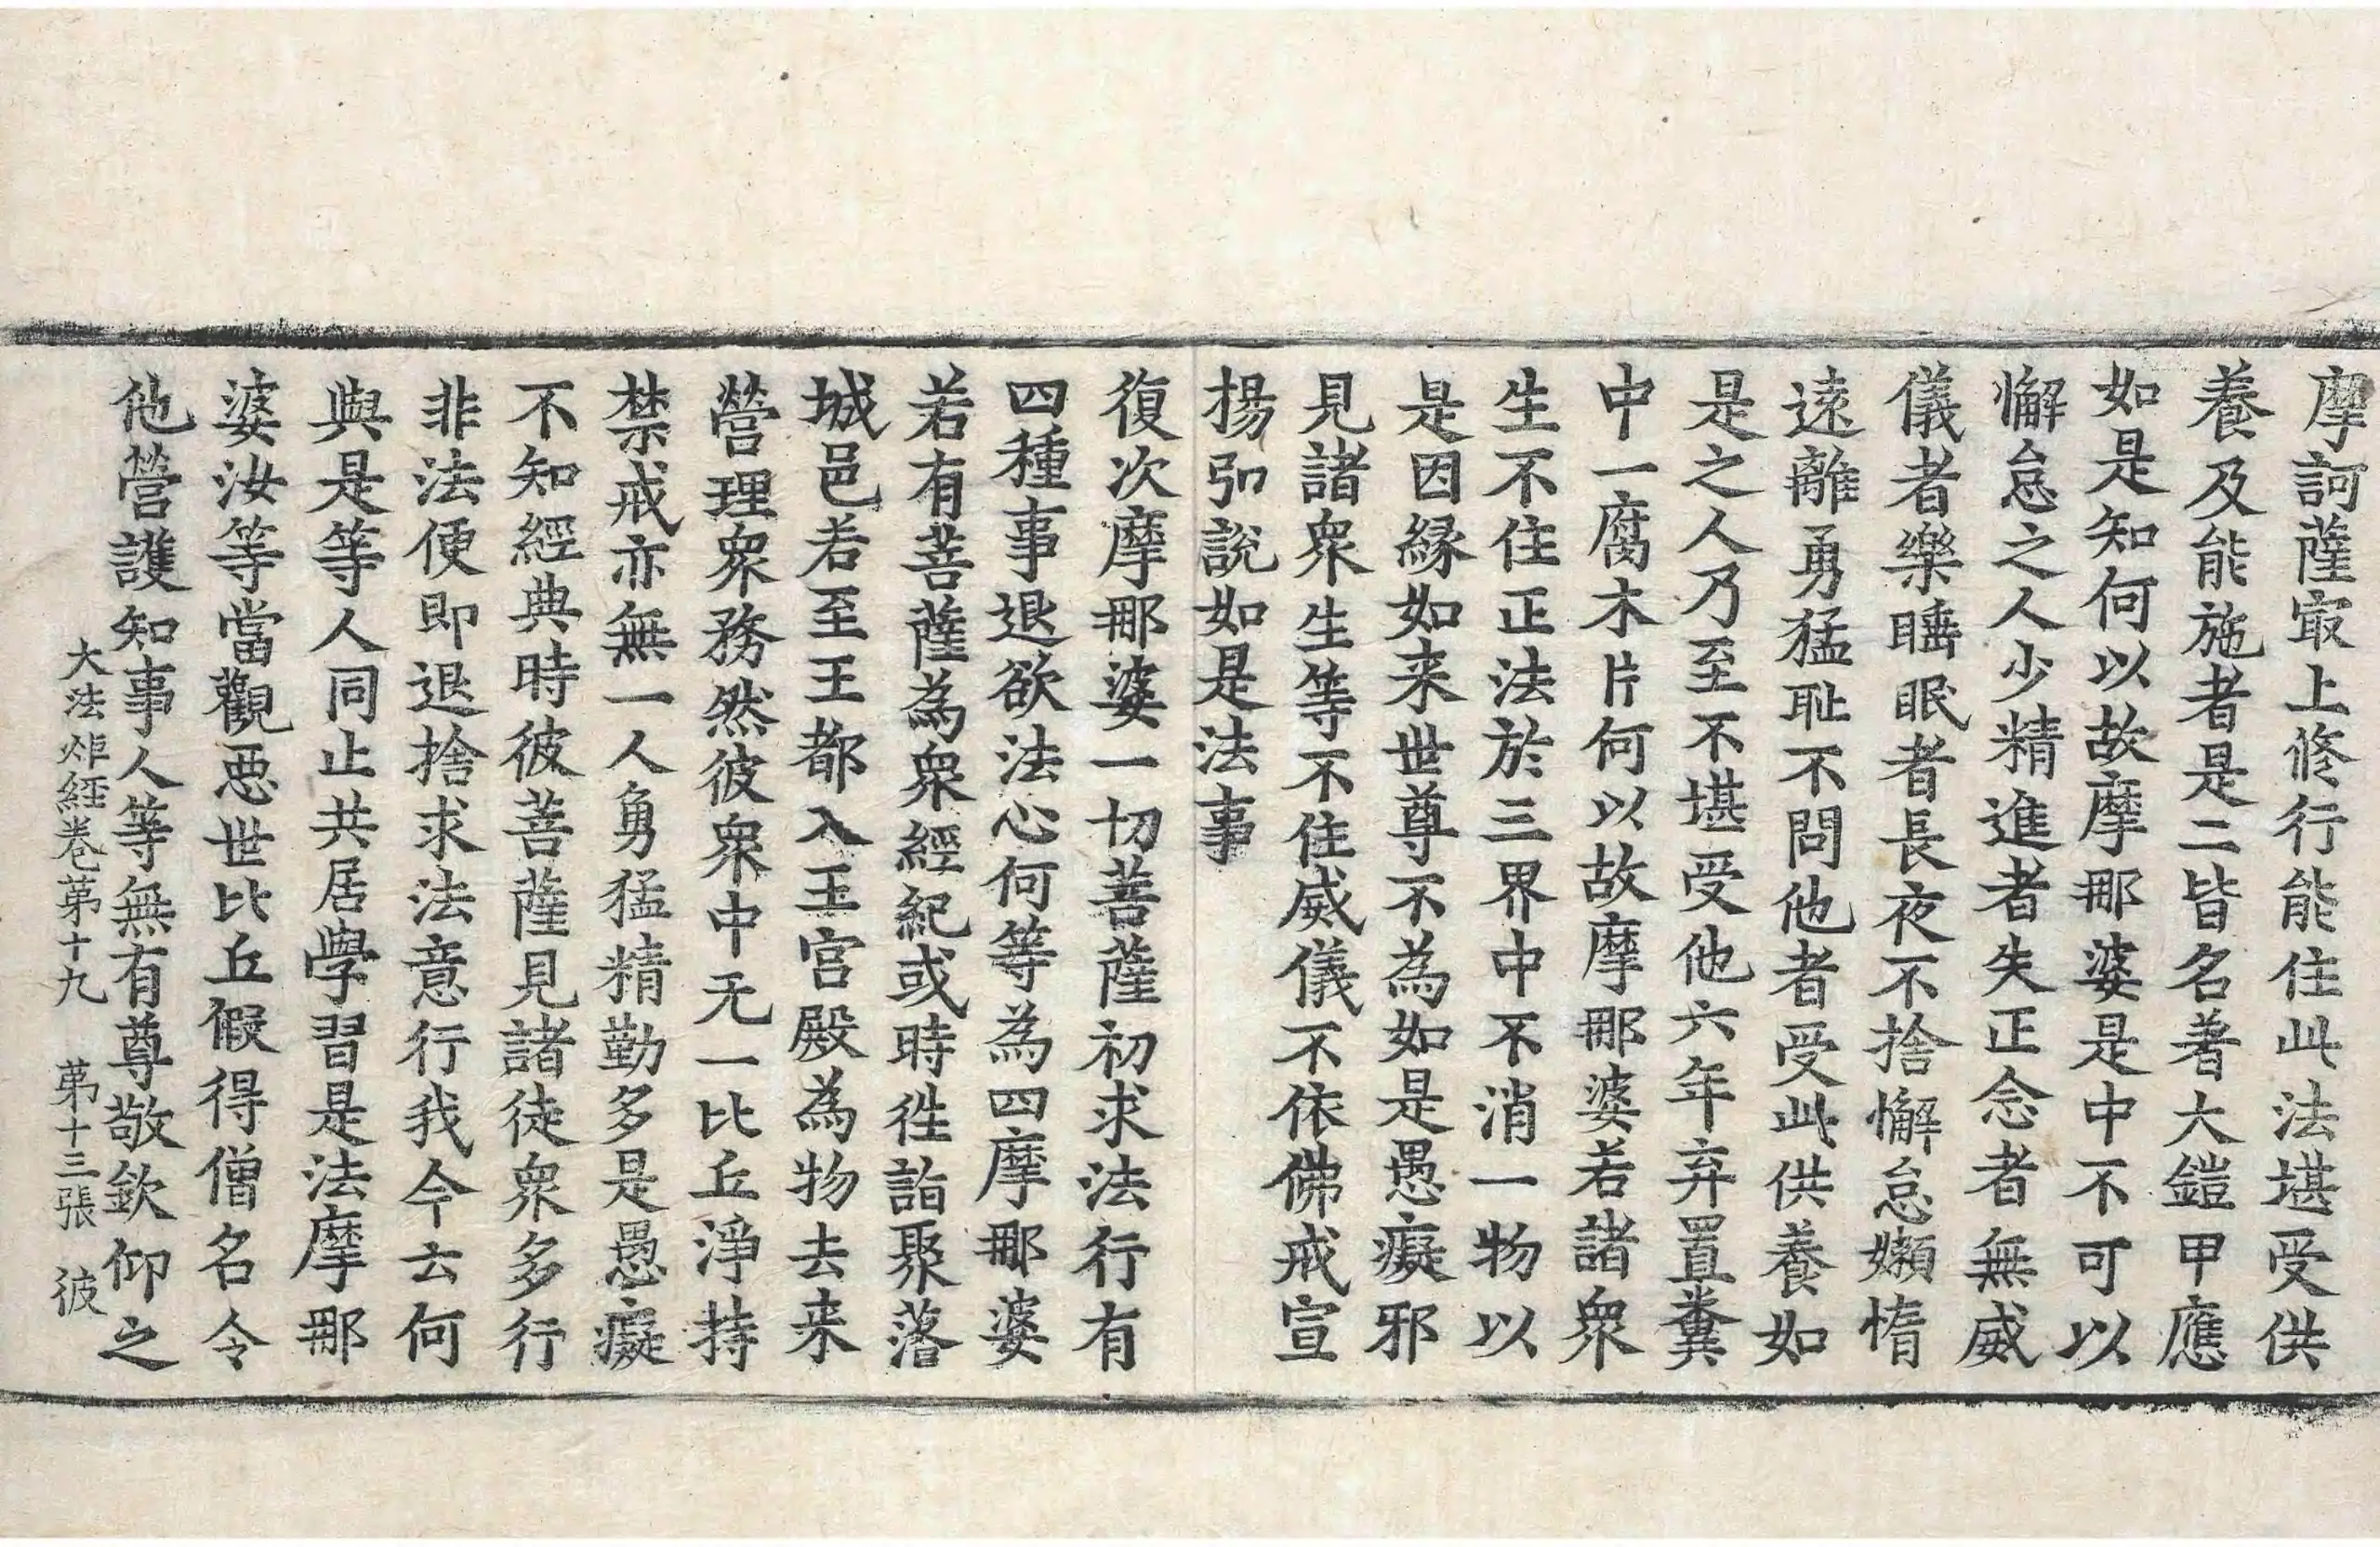 摩訶薩㝡上修行能住此法堪受供
養及能施者是二皆名著大鎧甲應
如是知何以故摩那婆是中不可以
懈怠之人少精進者失正念者無威
儀者樂睡眠者長夜不捨懈怠嬾惰
遠離勇猛耻不問他者受此供養如
是之人乃至不堪受他六年弃置糞
中一腐木片何以故摩那婆若諸衆
生不住正法於三界中不消一物以
是因縁如来世尊不為如是愚癡邪
見諸衆生等不住威儀不依佛戒宣
揚弘說如是法事
復次摩那婆一切菩薩初求法行有
四種事退欲法心何等為四摩那婆
若有菩薩為衆經紀或時徃詣聚落
城邑若至王都入王宮殿為物去来
營理衆務然彼衆中无一比丘淨持
禁戒亦無一人勇猛精勤多是愚癡
不知經典時彼菩薩見諸徒衆多行
非法便即退捨求法意行我今云何
與是等人同止共居學習是法摩那
婆汝等當觀惡世比丘假得僧名令
他營護知事人等無有尊敬欽仰之
大法炬経卷第十九 第十三張 彼